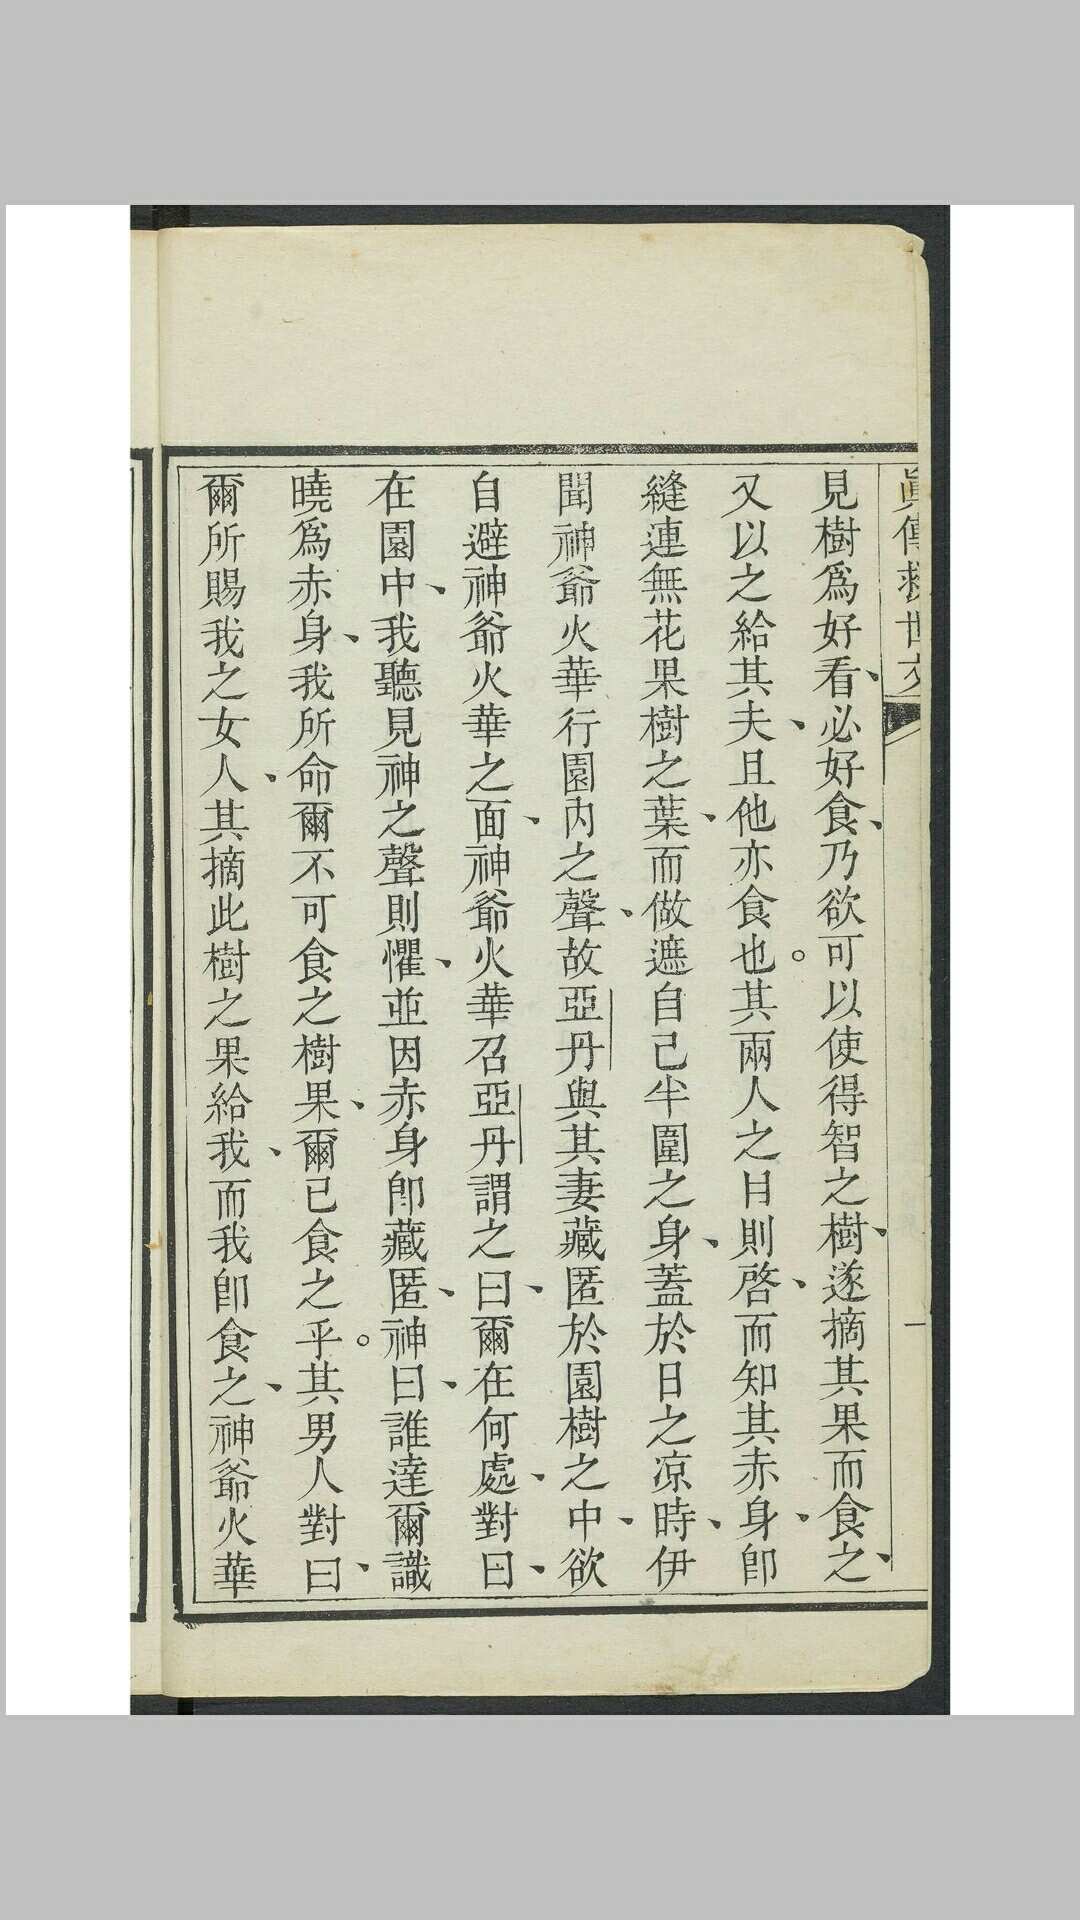 眞傳救世文
一
見樹爲好看、必好食、乃欲可以使得智之樹、遂摘其果而食之、
又以之給其夫、且他亦食也。其兩人之目則啓、而知其赤身、卽
縫連無花果樹之葉、而做遮自己半圍之身、蓋於日之凉時、伊
聞神爺火華行園內之聲、故亞丹與其妻藏匿於園樹之中、欲
自避神爺火華之面、神爺火華召亞丹謂之曰、爾在何處、對曰、
在園中、我聽見神之聲則懼、並因赤身卽藏匿、神曰、誰達爾識
曉爲赤身、我所命爾不可食之樹果、爾已食之乎。其男人對曰、
爾所賜我之女人、其摘此樹之果給我、而我卽食之、神爺火華